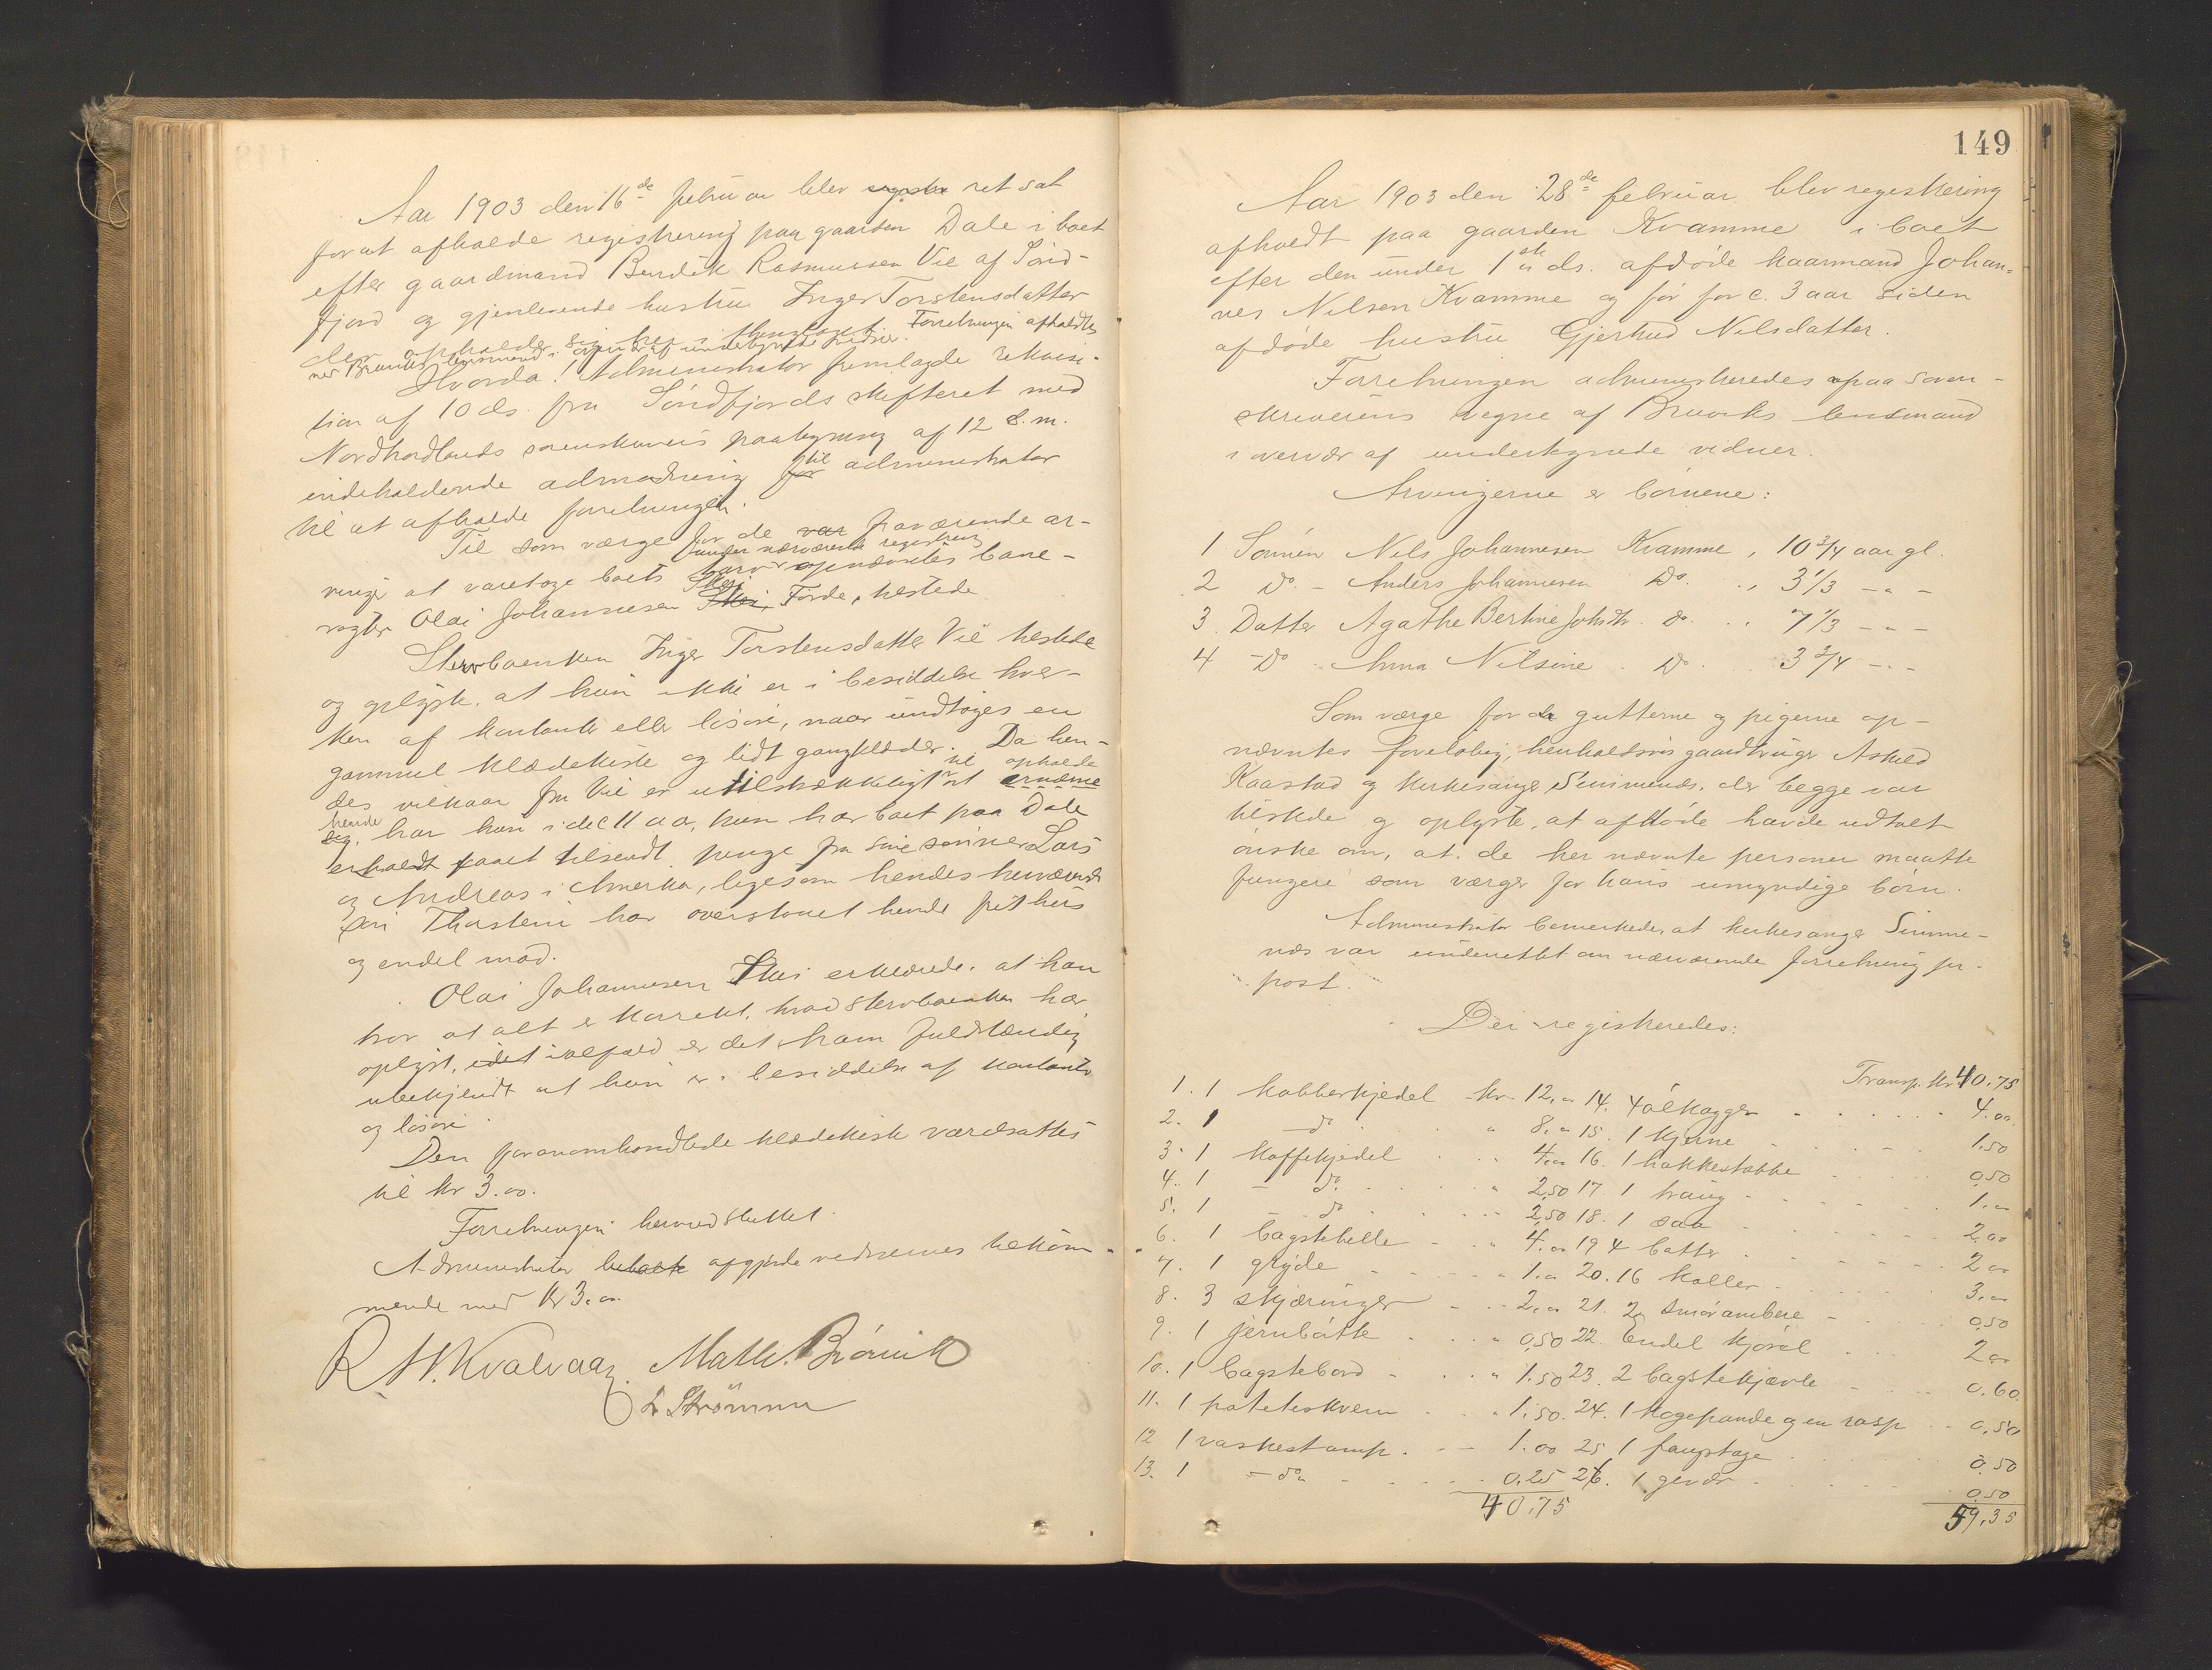 Aar 1903 den 16de februar blev ret sat
for at afholde registrering paa gaarden Dale i boet
efter gaardmand Bendik Rasmussen Vie af Sönd-
fjord og gjenlevende hustru Inger Torstensdatter
der opholder sig her i thinglaget. Forretningen afholdtes
ved Bruviks lensmand i overvær af undertegnede vidner.
Hvorda! Administrator fremlagde rekvisi-
tion af 10 ds. fra Söndfjords skifteret med
Nordhordlands sorenskriveris paategning af 12 d.m.
indeholdende admodning til administrator
til at afholde forretningen.
Til som værge for de var fraværende ar-
vinger at varetage boets tarv under nærværende registrering opnævntes bane-
vogter Olai Johannesen Skei, Förde, tilstede
Stervboenken Inger Torstensdatter Vie tilstede
og oplyste, at hun ikke er i besiddelse hver-
ken af kontanter eller lösöre, naar undtages en
gammel klædekiste og lidt gangklæder. Da hen-
des vilkaar fra Vie er utilstrækkeligt til at opholde ernære
hende sig, har hun i de 11 aar, hun har boet paa Dale
erholdt faaet tilsendt penge fra sine sönner Lars
og Andreas i Amerika, ligesom hendes herværende
sön Thorstein har overladt hende frit hus
og endel mad.
Olai Johannesen Skei erklærede, at han
tror at alt er korrekt, hvad stervboenken har
oplyst, idet ialfald er det ham fuldstændig
ubekjendt at hun er i besiddelse af kontanter
og lösöre.
Den foranomhandlede klædekiste værdsattes
til kr 3.00.
Forretningen hermed sluttet.
Administrator afgjorde vidnernes tilkom-
mende med Kr 3.00
R. H. Kvalvaag. Math. Brörvik
L Strömmen
149
Aar 1903 den 28de februar blev registrering
afholdt paa gaarden Kvamme i boet
efter den under 1ste ds. afdöde kaarmand Johan-
nes Nilsen Kvamme og för for c. 3 aar siden
afdöde hustru Gjertrud Nilsdatter.
Forretningen administreredes paa soren-
skriverens vegne af Bruviks lensmand
i overvær af undertegnede vidner.
Arvingerne er börnene:
1 Sönnen Nils Johannesen Kvamme, 10 3/4 aar gl.
2 Do. - Anders Johannesen Do. ., 3 1/3 - " -
3. Datter Agathe Bertine Johsdtr. do. . . 7 1/3 - " -
4 - Do . Anna Nilsine . Do . . 3 3/4 - " -
Som værge for de gutterne og pigerne op-
nævntes foreløbig, henholdsvis gaardbruger Askild
Kaastad og kirkesanger Simmenes, der begge var
tilstede og oplyste, at afdöde havde udtalt
önske om, at de her nævnte personer maatte
fungere som værger for hans umyndige börn.
Administrator bemerkede, at kirkesanger Simme-
næs var underrettet om nærværende forretning pr.
post.
Der registreredes:
Transp. kr 40.75
1. 1 kobberkjedel - kr - 12,00 14. 4 ölkagger 4.00
2. 1 do " 8.00 15. 1 kjerne 1.50
3. 1 kaffekjedel 4.00 16. 1 hakkestabbe 0,50
4. 1 - do. " 2,50 17. 1 traug 1.00
5. 1 do 2,50 18. 1 saa 2,00
6. 1 bagstehelle " 4.00 19 4 batter 2 00
7. 1 gryde " 1.00 20. 16 koller 3.00
8. 3 skjæringer 2.00 21. 2 smörambere 0,50
9. 1 jernbötte " 0,50 22. Endel kjörel 2 00
10. 1 bagstebord " 1.50 23. 2 bagstekjævle 0.60
11. 1 poteteskvern " 1.50. 24. 1 kogepande og en rasp 0,50
12 1 vaskestamp 1.00 25 1 0.50
13. 1 - do " 0.25 26. 1 gevær 0,50
40.75
59,35